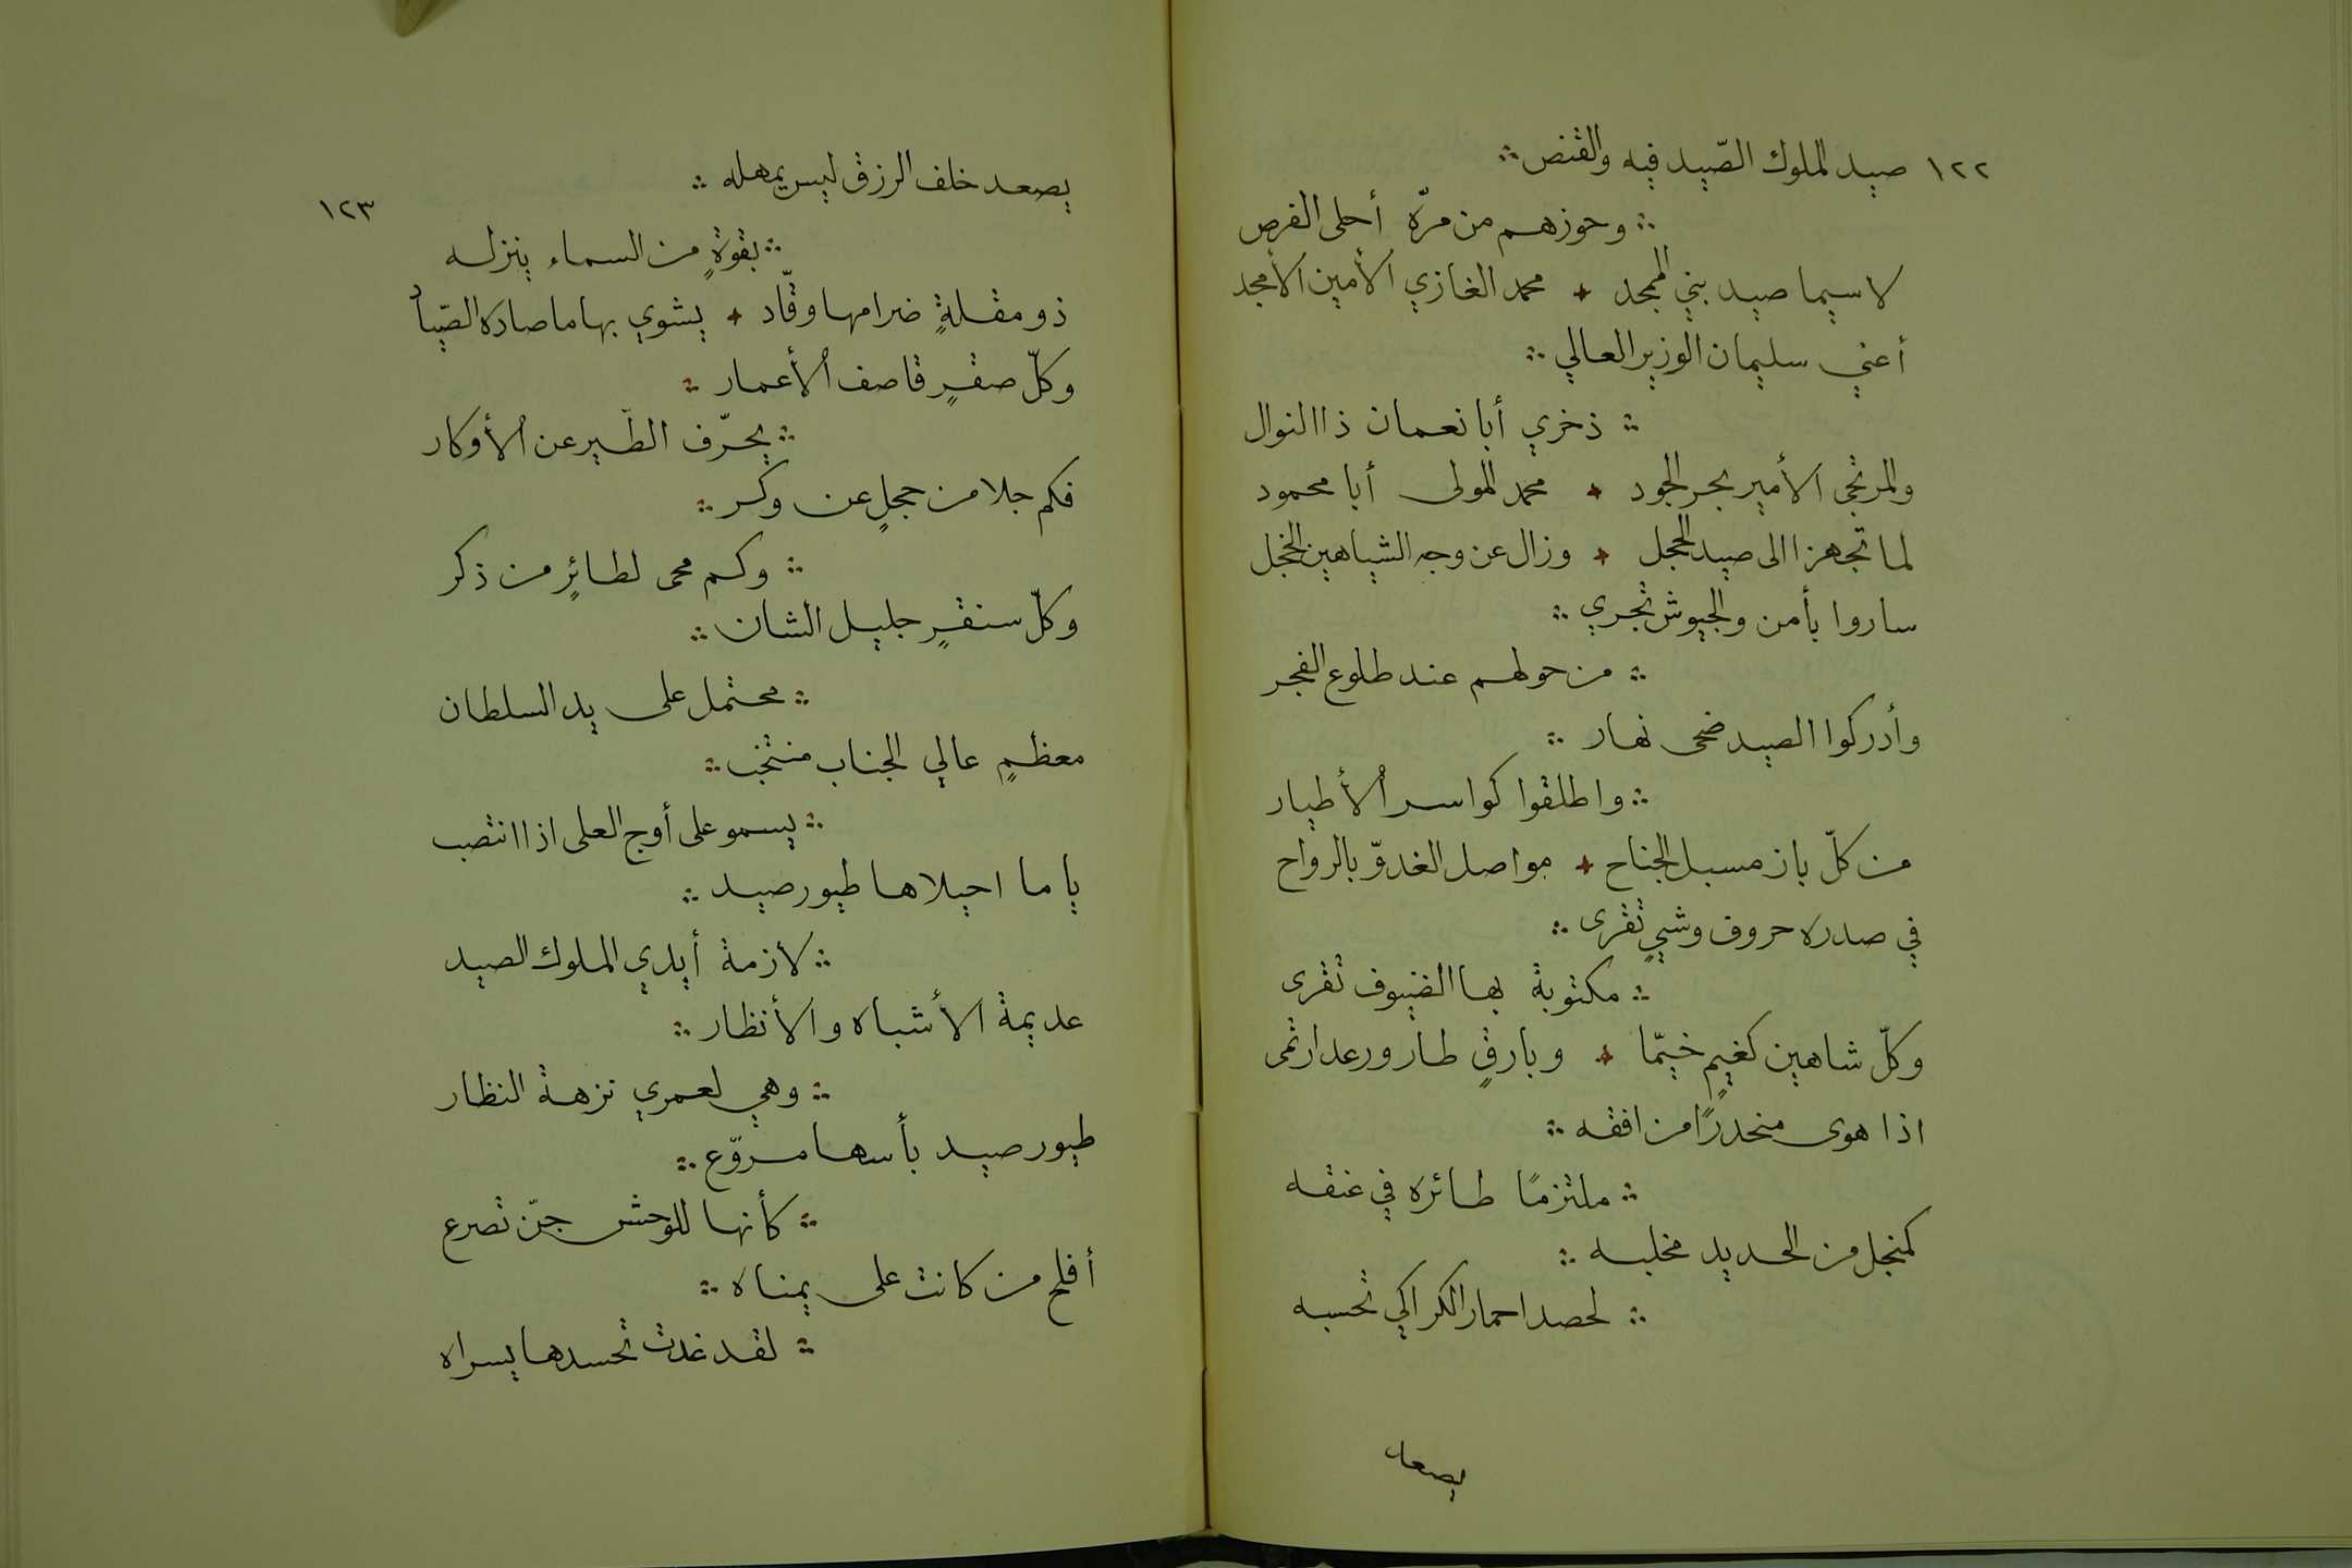 ١٢٢ صيد الملوك الصّيد فيه والقنص ∴
∴ وحوزهم من مرّة أحلى الفرص
لا سيما صيد بني الممجد ✦ محمد الغازي الأمين الأمجد
أعني سليمان الوزير العالي ∴
∴ ذخري أبا نعمان ذا النوال
والمرتجى الأمير بحر الجود ✦ محمد المولى أبا محمود
لما تجهزا الى صيد الحجل ✦ وزال عن وجه الشياهين الخجل
ساروا بأمن والجيوش تجري ∴
∴ من حولهم عند طلوع الفجر
وأدركوا الصيد ضحى نهار ∴
∴ واطلقوا كواسر الأطيار
من كلّ باز مسبل الجناح ✦ مواصل الغدوّ بالرواح
في صدره حروف وشيٍ تقرى ∴
∴ مكتوبة بها الضيوف تقرى
وكلّ شاهين كغيمٍ خيّما ✦ وبارقٍ طار ورعد ارتمى
اذا هوى منحدرًا من افقه ∴
∴ ملتزمًا طائره في عنقه
كمنجل من الحديد مخلبه ∴
∴ لحصد احمار الكراكي تحسبه
يصعد
يصعد خلف الرزق ليس يمهله ∴
١٢٣
∴ بقوةٍ من السماء ينزله
ذو مقلةٍ ضرامها وقّاد ✦ يشوي بها ما صاده الصّياد
وكلّ صقرٍ قاصف الأعمار ∴
∴ يحرّف الطّير عن الأوكار
فكم جلا من حجلٍ عن وكر ∴
∴ وكم محى لطائرٍ من ذكر
وكلّ سنقرٍ جليل الشان ∴
∴ محتمل على يد السلطان
معظمٍ عالي الجناب منتخب ∴
∴ يسمو على أوج العلى اذا انتصب
يا ما احيلاها طيور صيد ∴
∴ لأزمة أيدي الملوك الصيد
عديمة الأشباه والأنظار ∴
∴ وهي لعمري نزهة النظار
طيور صيد بأسها مروّع ∴
∴ كأنها للوحش جنّ تصرع
أفلح من كانت على يمناه ∴
∴ لقد غدت تحسدها يسراه